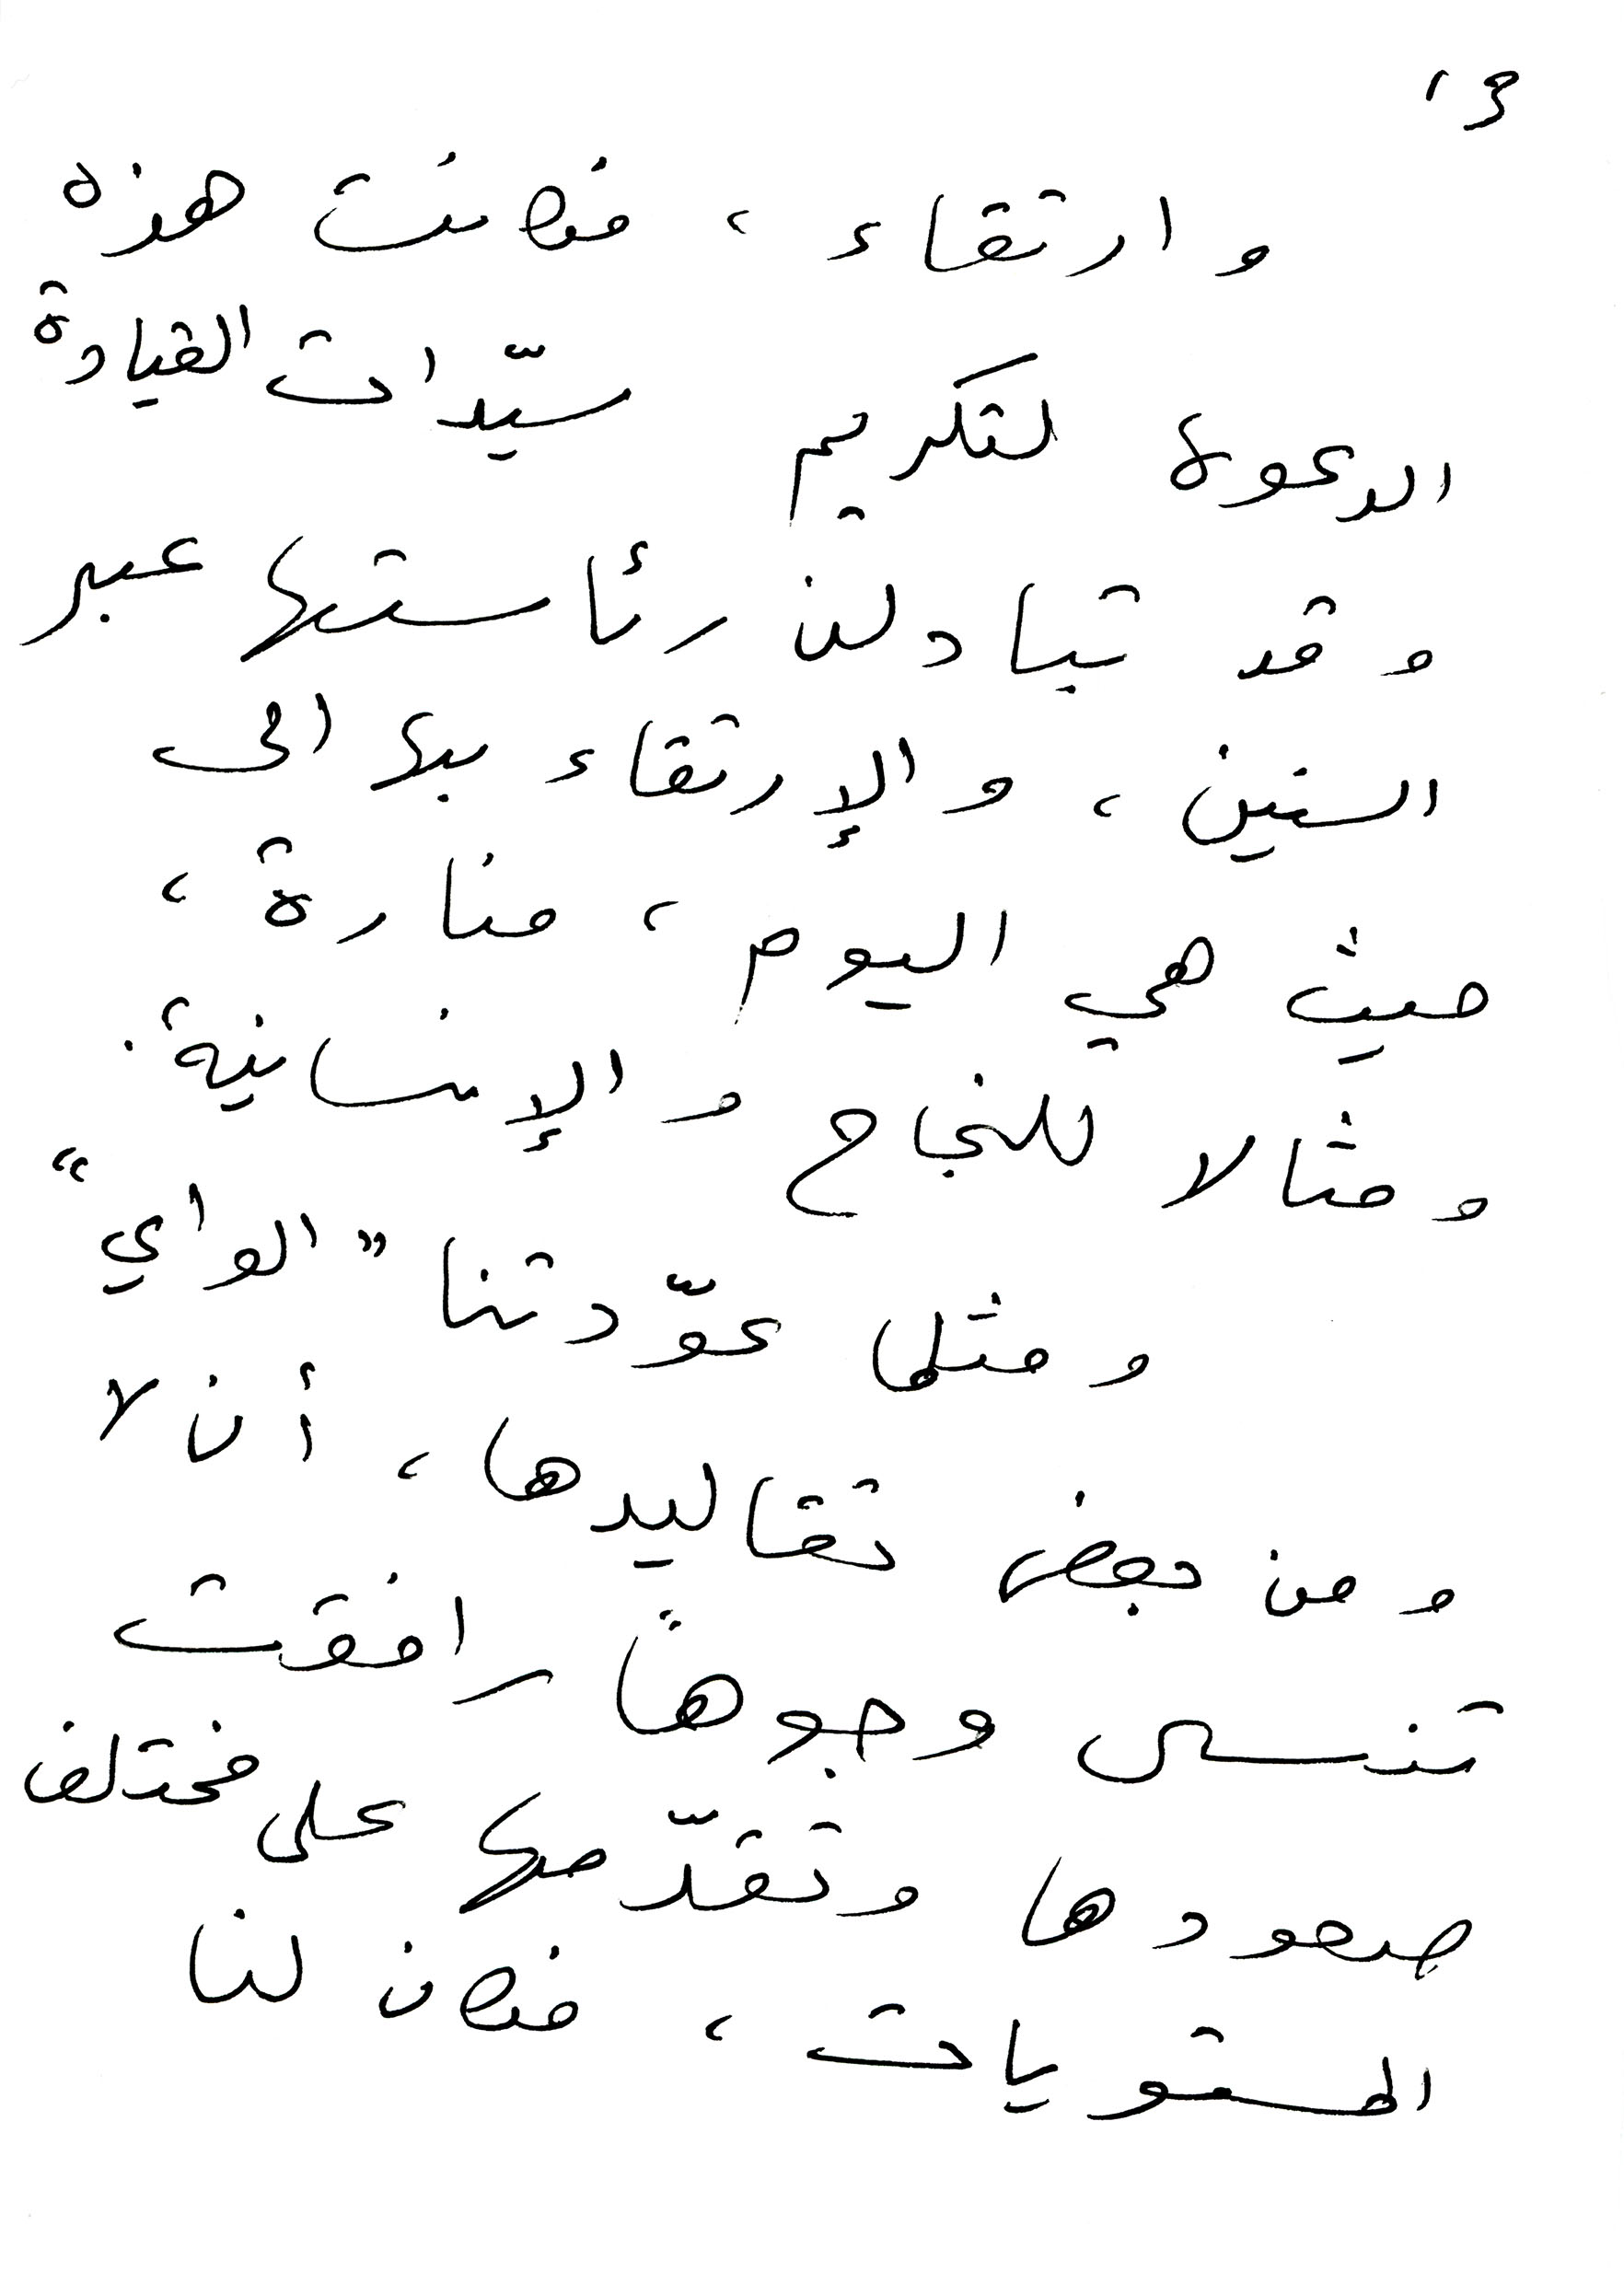 3،
وارتقاء، فكانت هذه
الدعوة لتكريم سيّدات القيادة
وقد تبادلن رئاستها عبر
السنين، والإرتقاء بها الى
حيث هي اليوم، منارة،
ومثالا للنجاح والإنسانية.
ومثلما عوّدتنا "الواي"
ومن بعض تقاليدها، أن لا
تنسى وجوهاً رافقت
صعودها وتقدّمها على مختلف
المستويات، فكان لنا